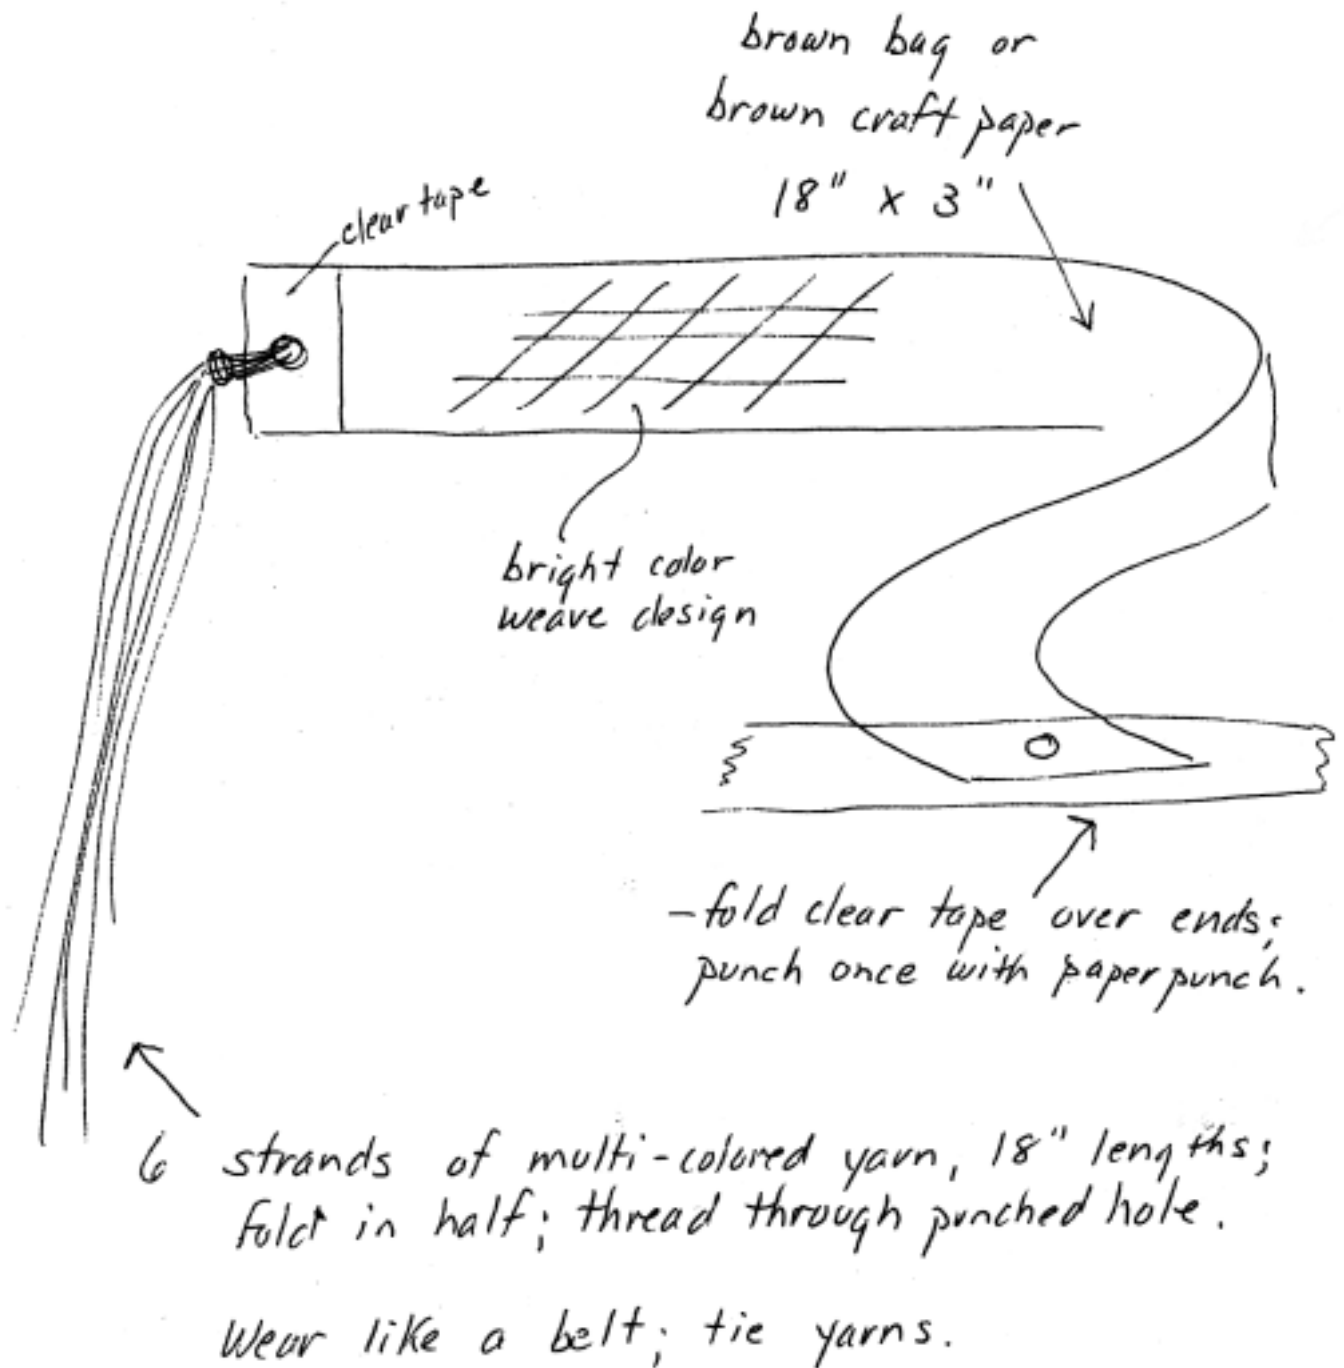 brown bag or
brown craft paper
18" x 3"
clear tape
bright color
weave design
- fold clear tape over ends;
punch once with paper punch.
6 strands of multi-colored yarn, 18" lengths;
fold in half; thread through punched hole.
Wear like a belt; tie yarns.